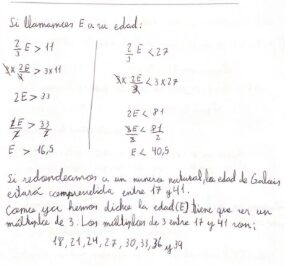 Si llamamos E a su edad:
2/3 E > 11
3 x 2E/3 > 3 x 11
2E > 33
2E/2 > 33/2
E > 16,5
2/3 E < 27
3 x 2E/3 < 3 x 27
2E < 81
2E/2 < 81/2
E < 40,5
Si redondeamos a un numero natural, la edad de Galois
estará comprendida entre 17 y 41.
Como ya hemos dicho la edad (E) tiene que ser un
múltiplo de 3. Los múltiplos de 3 entre 17 y 41 son;
18, 21, 24, 27, 30, 33, 36 y 39